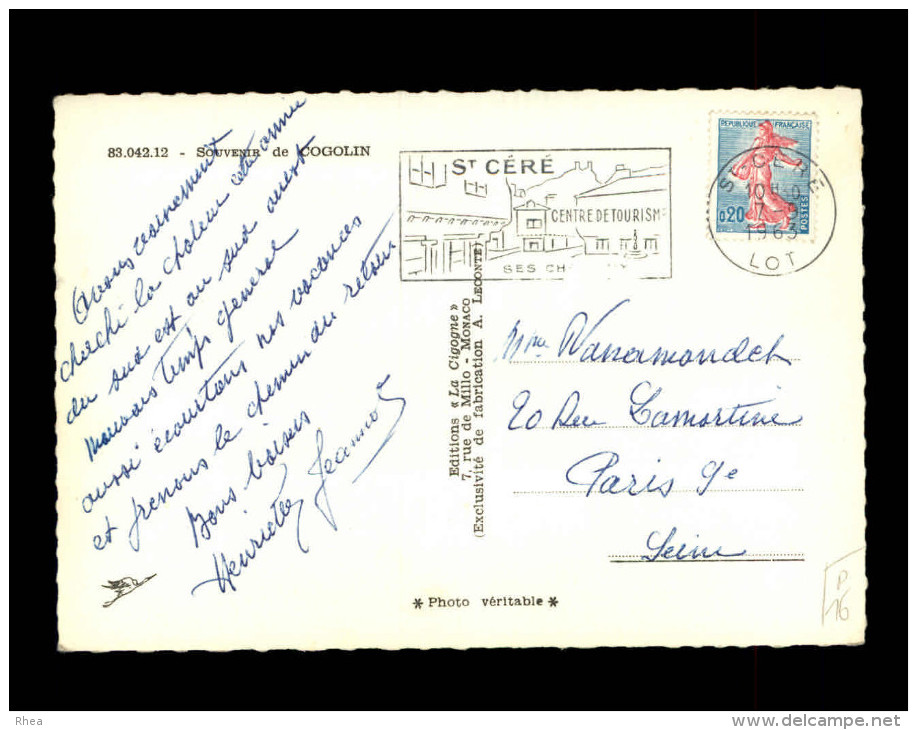 83.042.12 - SOUVENIR de COGOLIN
Avons vainement
cherché la chaleur
du sud est au sud ouest
mauvais temps general
aussi écourtons nos vacances
et prenons le chemin du retour
Bons baisers
Henriette Jeannot
ST CÉRÉ
CENTRE DE TOURISME
SES CH
REPUBLIQUE FRANÇAISE
0,20
POSTES
ST CERE
1963
LOT
Editions « La Cigogne »
7, rue de Millo - MONACO
(Exclusivité de fabrication A. LECONTE)
Mme Wanamandek
20 Rue Lamartine
Paris 9e
Seine
* Photo véritable *
P
16
Rhea
www.delcampe.net